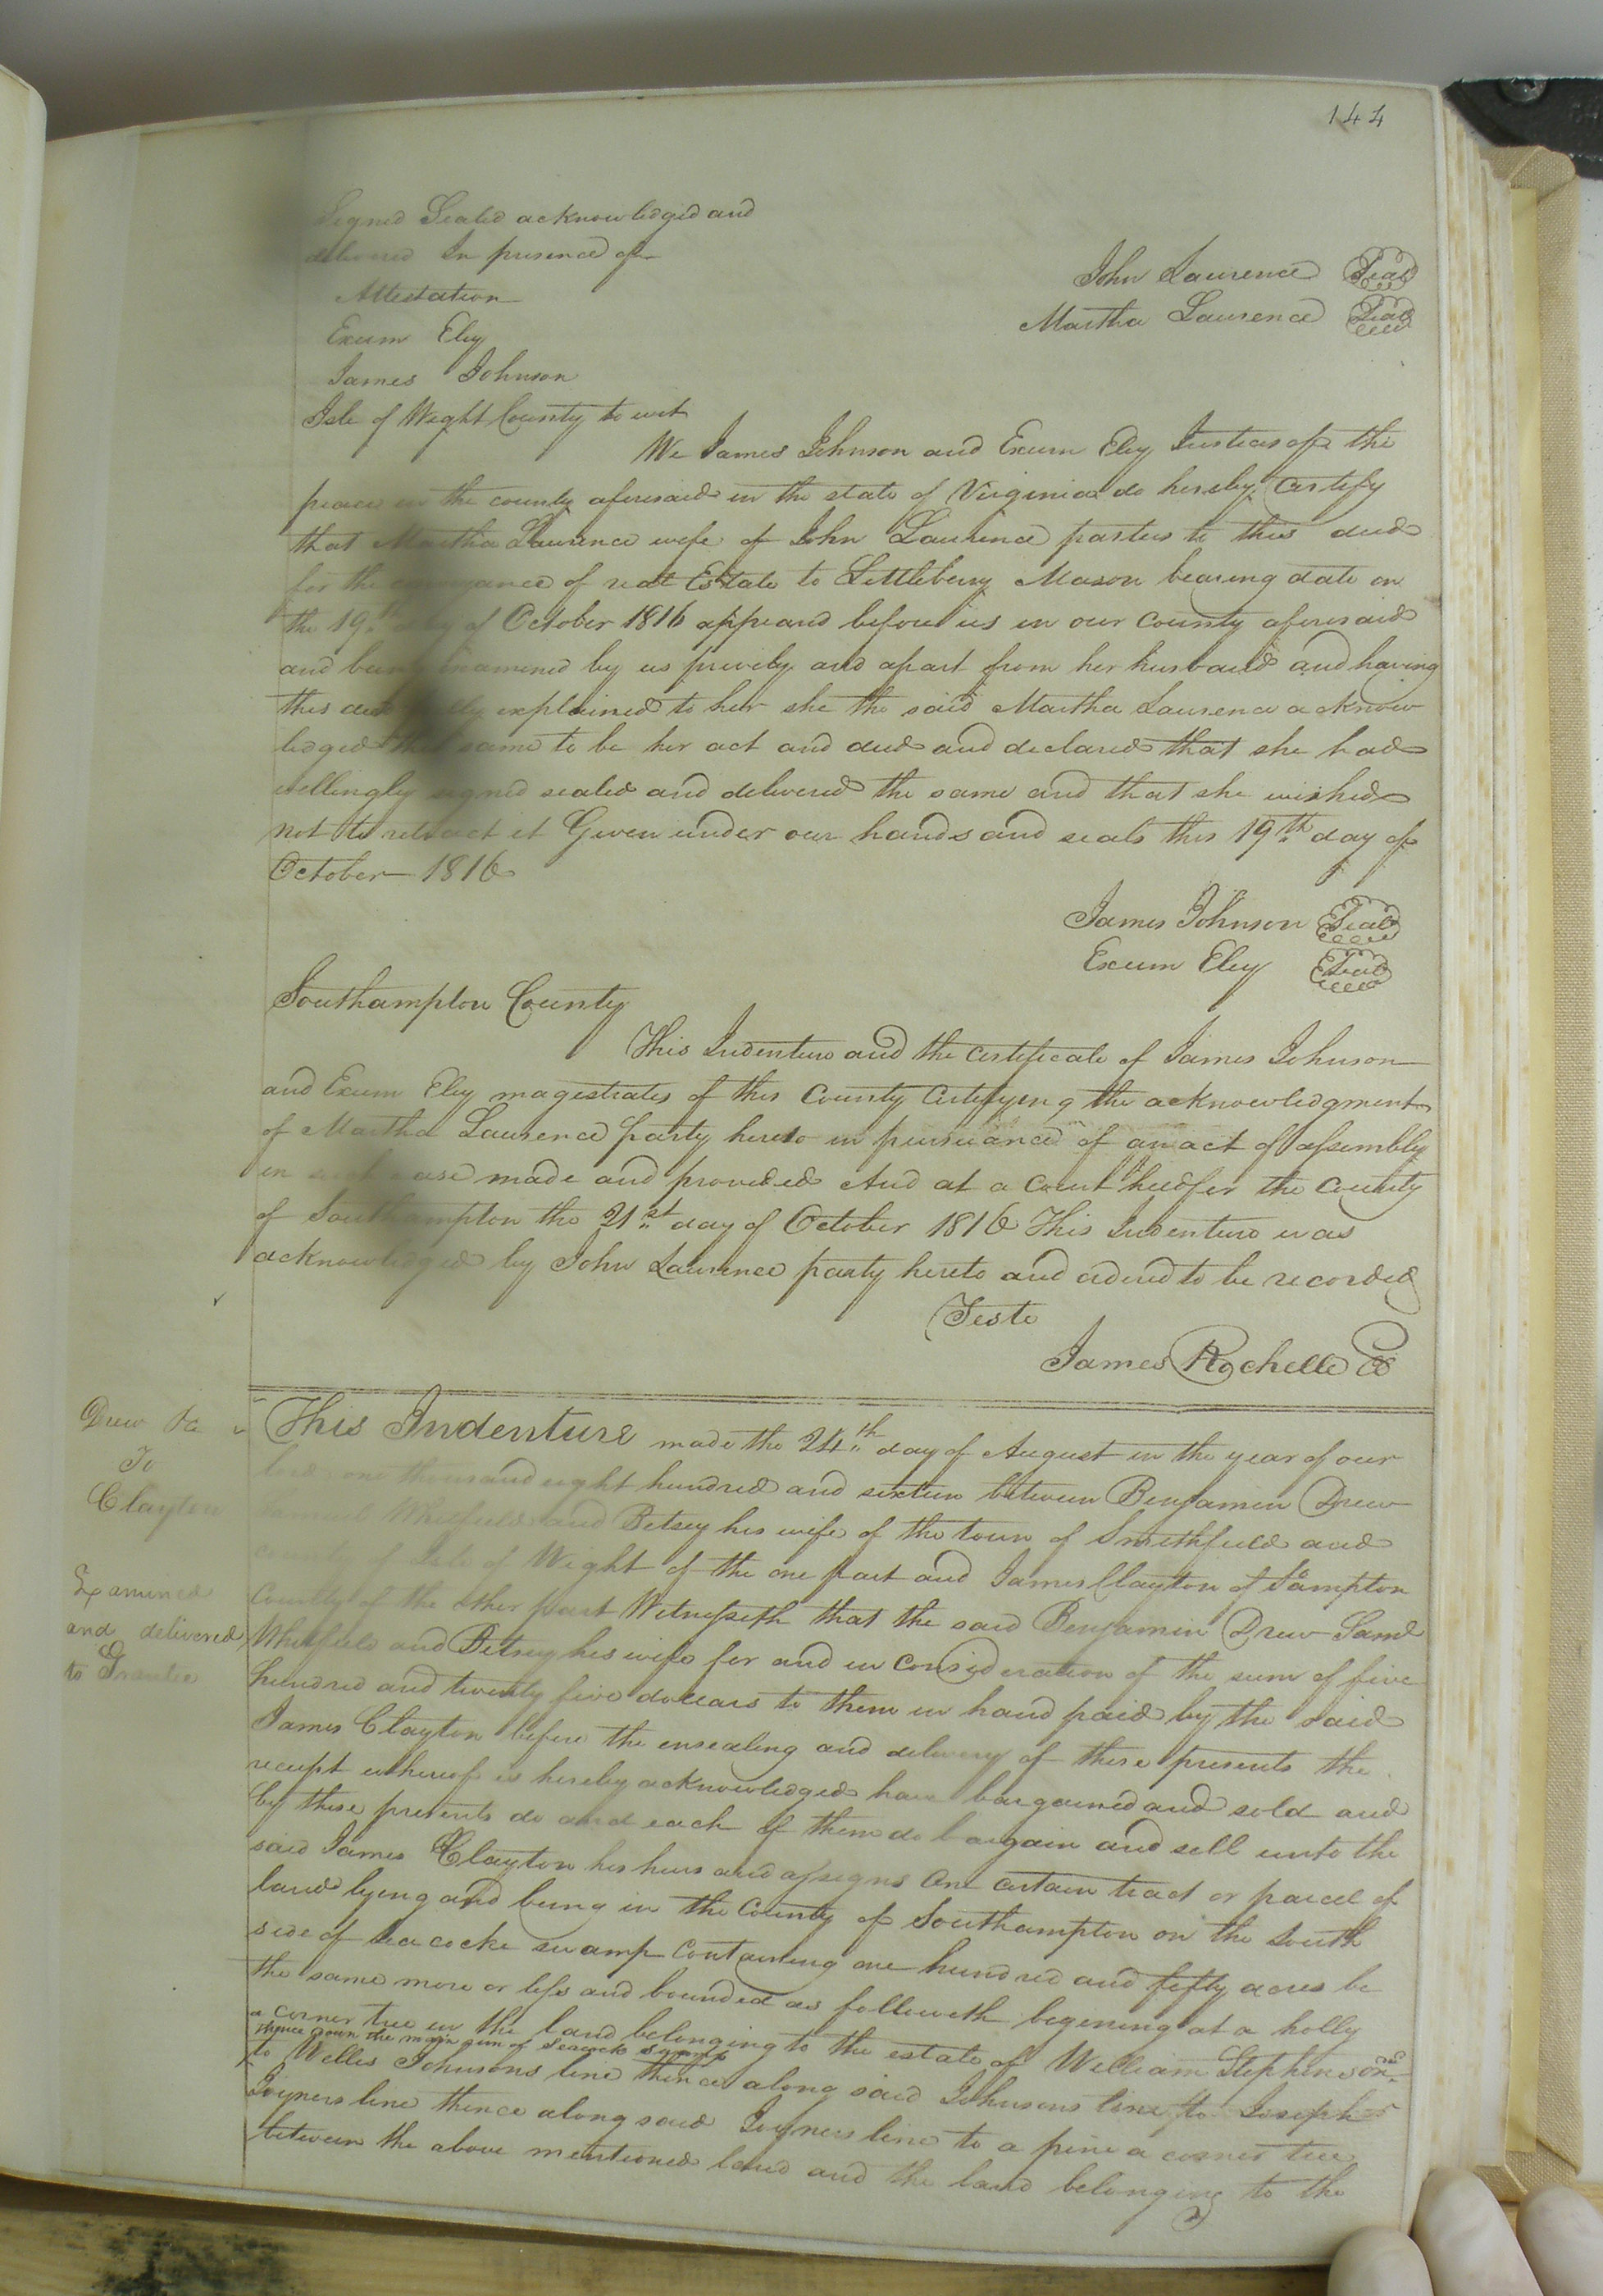 144
Signed Sealed acknowledged and
delivered In presence of
John Laurence Seal
Attestation
Martha Laurence Seal
Exum Eley
James Johnson
Isle of Wight County to wit
We James Johnson and Exum Eley Justices of the
peace in the county aforesaid in the state of Virginia do hereby Certify
that Martha Laurence wife of John Laurence parties to this deed
for the conveyance of real Estate to Littlebury Mason bearing date on
the 19th day of October 1816 appeard before us in our County aforesaid
and being Examined by us privily and apart from her husband and having
this deed fully explained to her she the said Martha Laurence acknow
ledged the same to be her act and deed and declared that she had
willingly signed sealed and delivered the same and that she wished
not to retract it Given under our hands and seals this 19th day of
October 1816
James Johnson Seal
Exum Eley Seal
Southampton County
This Indenture and the Certificate of James Johnson
and Exum Eley magistrates of this County Certifying the acknowledgment
of Martha Laurence party hereto in pursuance of an act of assembly
in such case made and provided And at a Court held for the County
of Southampton the 21st day of October 1816 This Indenture was
acknowledged by John Laurence party hereto and ordered to be recorded
Teste
James Rochelle CC
Drew &c
To
Clayton
Examined
and delivered
to Grantee
This Indenture made the 24th day of August in the year of our
lord one thousand eight hundred and sixteen between Benjamin Drew
Samuel Whitfield and Betsey his wife of the town of Smithfield and
county of Isle of Wight of the one part and James Clayton of Sampton
County of the other part Witnesseth that the said Benjamin Drew Saml
Whitfield and Betsey his wife for and in Consideration of the sum of five
hundred and twenty five dollars to them in hand paid by the said
James Clayton before the ensealing and delivery of these presents the
receipt whereof is hereby acknowledged have bargained and sold and
by these presents do and each of them do bargain and sell unto the
said James Clayton his heirs and assigns One certain tract or parcel of
land lying and being in the County of Southampton on the South
side of Seacocke swamp Containing one hundred and fifty acres be
the same more or less and bounded as followeth begining at a holly
a corner tree in the land belonging to the estate of William Stephenson decd
thence down the main run of Seacock swamp
to Willis Johnsons line thence along said Johnsons line to Joseph
Joyners line thence along said Joyners line to a pine a corner tree
between the above mentioned land and the land belonging to the